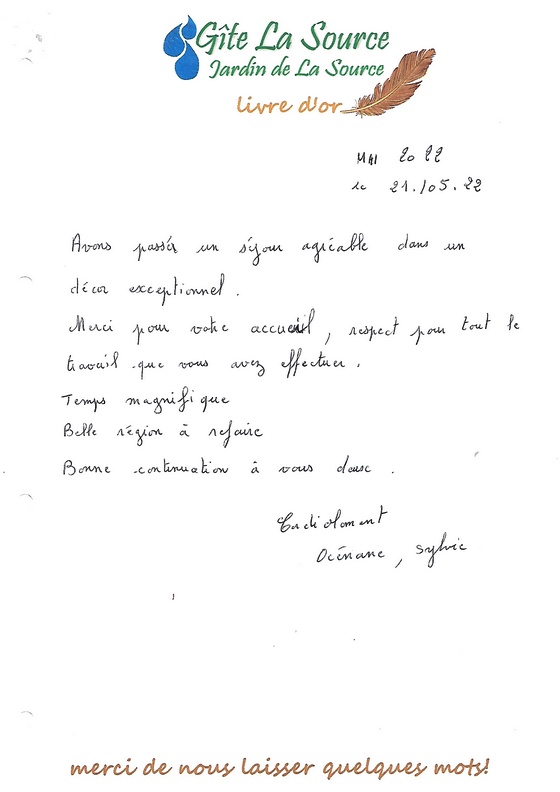 Gîte La Source
Jardin de La Source
livre d'or
MAI 2022
le 21/05.22
Avons passér un séjour agréable dans un
décor exceptionnel.
Merci pour votre accueil, respect pour tout le
travail que vous avez effectuer.
Temps magnifique
Belle région à refaire
Bonne continuation à vous deux.
Cordialement
Océnane, Sylvie
merci de nous laisser quelques mots!